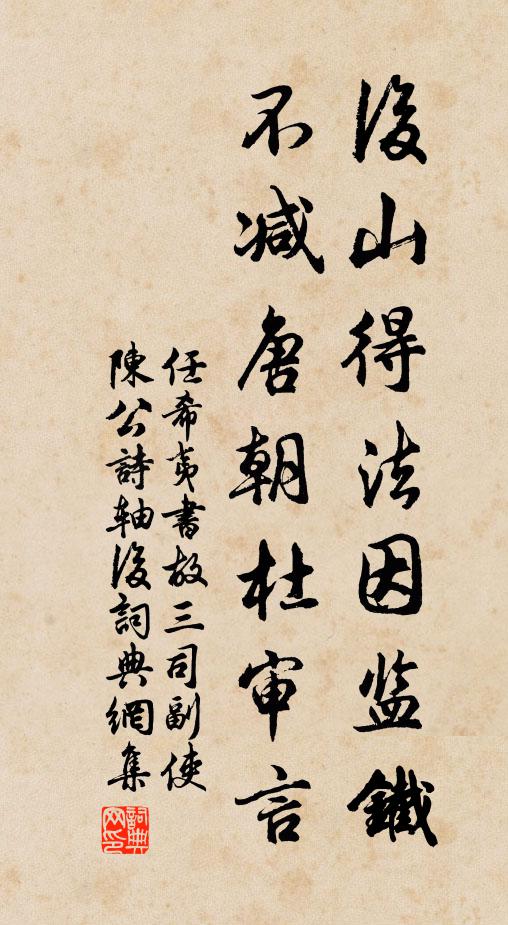 後山得法因监鐵
不减唐朝杜审言
任希夷書故三司副使
陳公詩軸後詞典網集
詞典
网印